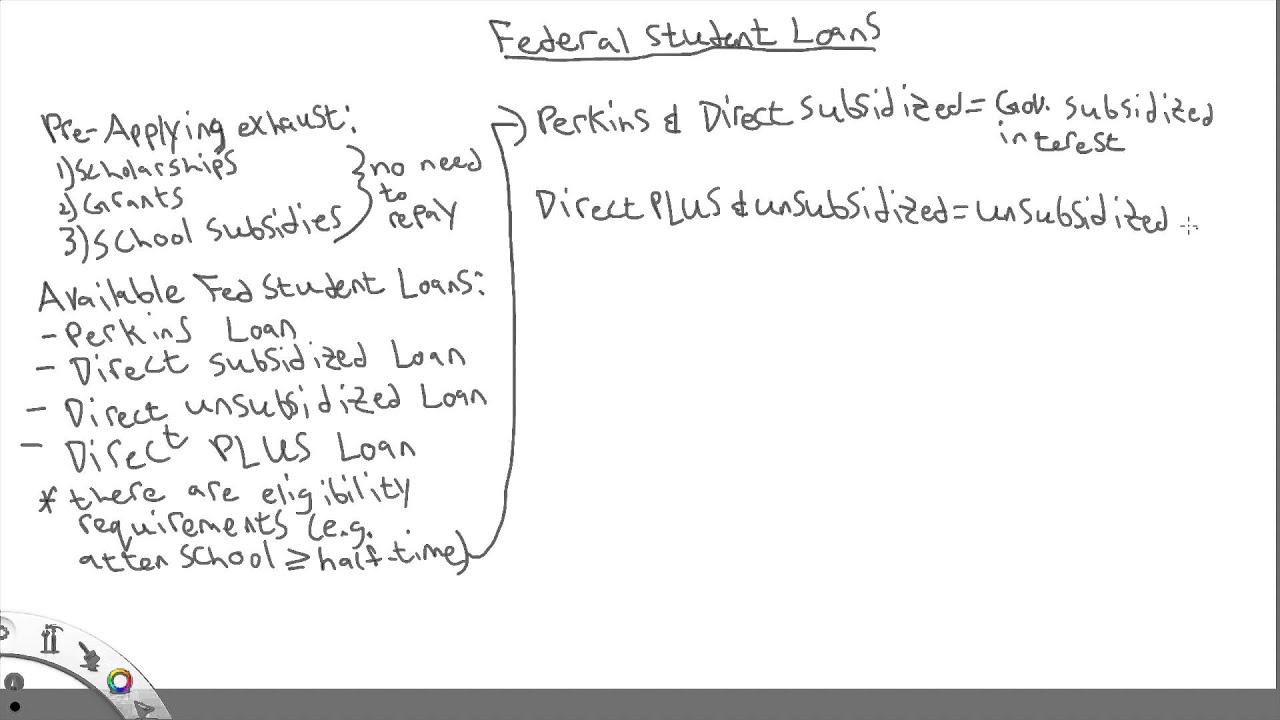 Federal Student Loans
Pre-Applying exhaust:
1) Scholarships
2) Grants
3) School subsidies
no need
to
repay
Available Fed Student Loans:
- Perkins Loan
- Direct subsidized Loan
- Direct unsubsidized Loan
- Direct PLUS Loan
* there are eligibility
requirements (e.g.
atten school ≥ half-time)
Perkins & Direct subsidized = Gov. subsidized
interest
Direct PLUS & unsubsidized = unsubsidized